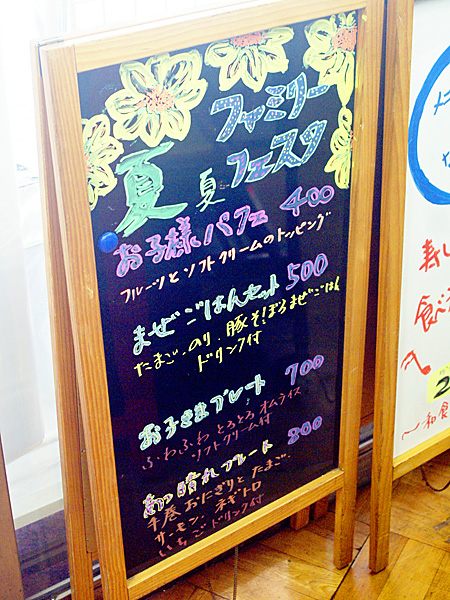 ファミリー
夏 夏 フェスタ
お子様パフェ 400
フルーツとソフトクリームのトッピング
まぜごはんセット 500
たまご、のり、豚そぼろまぜごはん
ドリンク付
お子さまプレート 700
ふわふわ とろとろ オムライス
ソフトクリーム付
晴れプレート 800
手巻おにぎりと たまご、
サーモン、ネギトロ
いちご ドリンク付
寿し
食べ
2
～和食